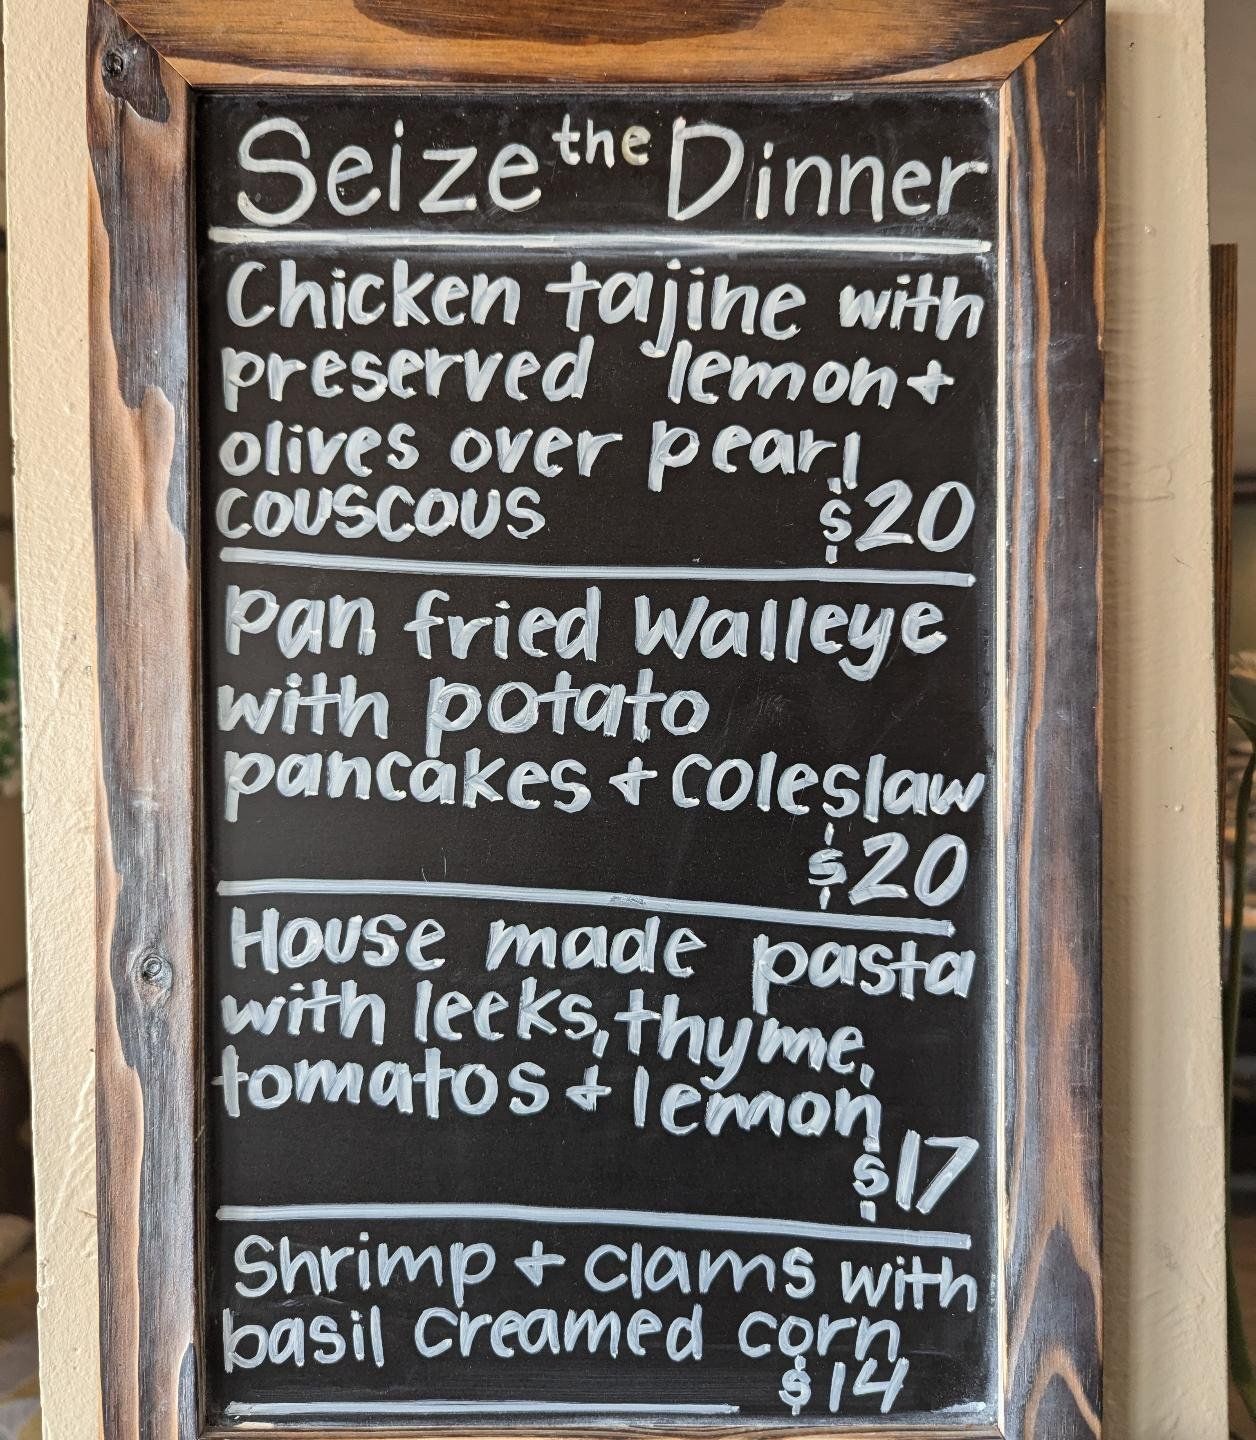 Seize the Dinner
Chicken tajine with
preserved lemon +
olives over pearl
couscous $20
Pan fried Walleye
with potato
pancakes + coleslaw
$20
House made pasta
with leeks, thyme,
tomatos + lemon
$17
Shrimp + clams with
basil creamed corn
$14